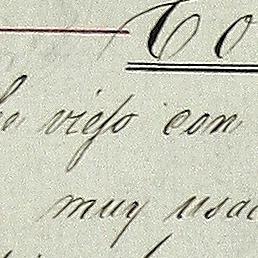 Co
viejo con
muy usad